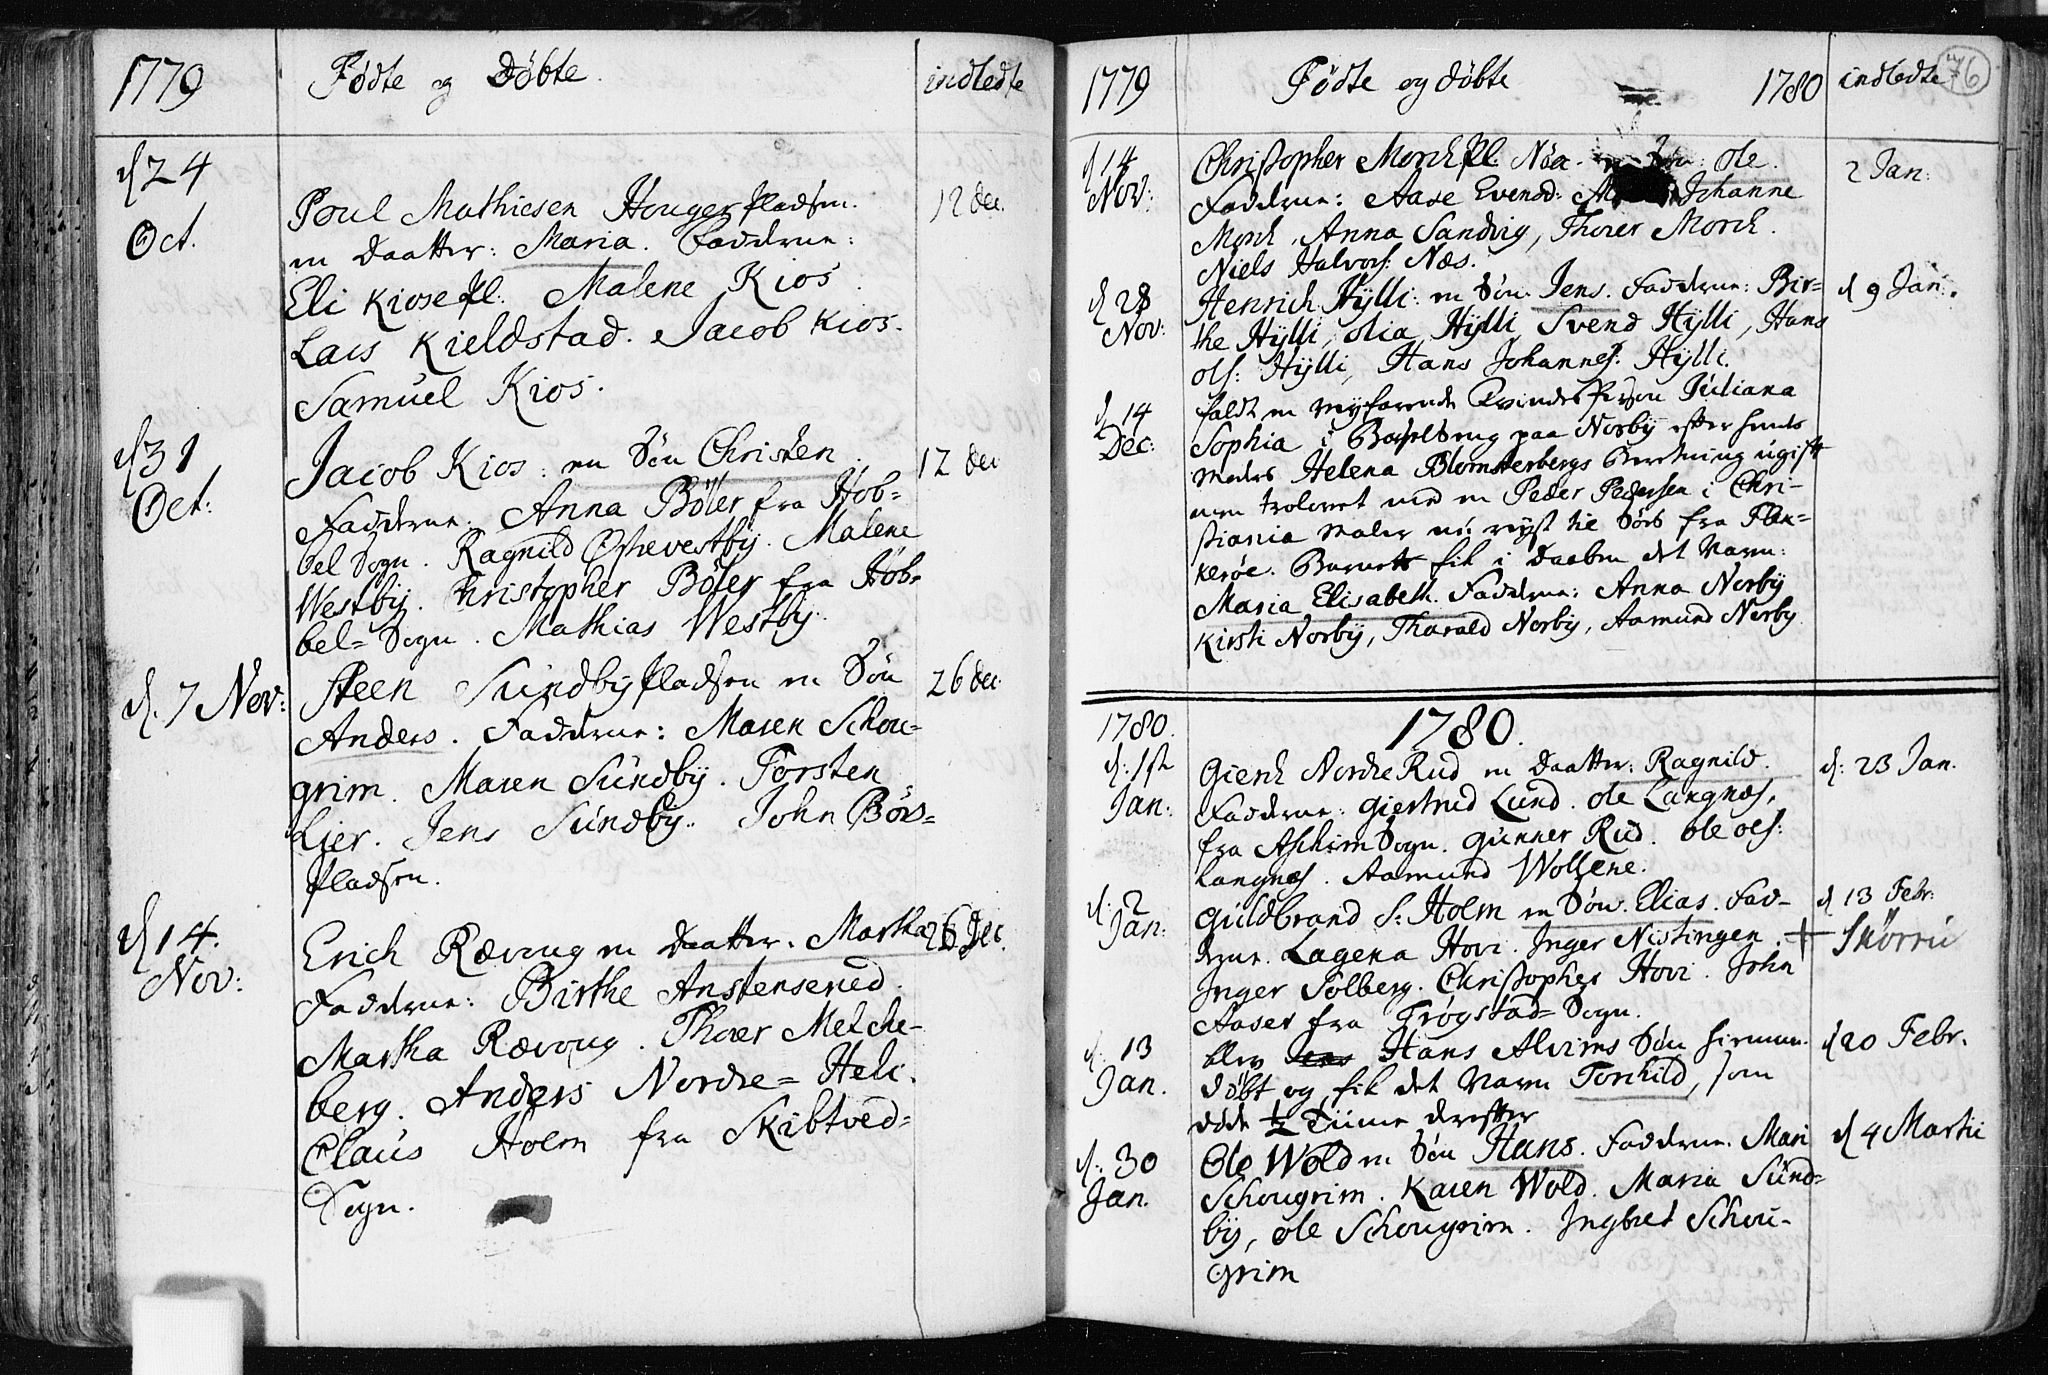 1779 Fødte og Døbte. indledte
d 24 Oct. Poul Mathiesen Houger pladsen. 12 Dec.
en Daatter: Maria. Faddrene:
Eli Kiose pl: Malene Kios.
Lars Kieldstad. Jacob Kios.
Samuel Kios.
d 31 Oct: Jacob Kios: en Søn Christen. 12 Dec
Faddrene: Anna Böler fra Hob=
bel Sogn. Ragnild Østrevestbÿ. Malene
Westbÿ. Christopher Böler fra Hob=
bel= Sogn. Mathias Westbÿ.
d. 7 Nov: Steen Sündbÿ pladsen en Søn 26 Dec.
Anders. Faddrene: Maren Schou=
grim. Maren Sündbÿ. Torsten
Lier. Jens Sündbÿ. John Börs=
pladsen.
d 14. Nov: Erich Rævoug en Daatter. Martha 26 Dec.
Faddrene: Birthe Anstensrued.
Martha Rævoug. Thoer Melche=
berg. Anders Nordre= Heli.
Claus Holm fra Skibtved=
Sogn.
1779 Fødte og døbte 1780 indledte 76
d 14 Nov: Christopher Morch pl. Søn: Ole. 2 Jan:
Faddrene: Aase Evensd: Johanne
Morch, Anna Sandvig, Thorer Morch.
Niels Halvors: Næs.
d 28 Nov: Henrich Hÿlli: en Søn Jens. Faddrene: Bir= d 9 Jan:
the Hÿlli, Olia Hÿlli, Svend Hÿlli, Hans
Ols: Hÿlli, Hans Johannes: Hÿlli.
d 14 Dec: faldt en Qvindes Person Juliana
Sophia i Barselseng paa Norbÿ efter hendes
Moders Helena Blomsterbergs Beretning ugift
men trolovet med en Peder Pedersen i Chri=
stiania Maler nu reyst til Søes fra Flek=
kerøe. Barnet fik i Daaben det Navn:
Maria Elisabeth. Faddrene: Anna Norbÿ
Kirsti Norbÿ, Tharald Norbÿ, Aamund Norbÿ
1780. 1780.
d: 1ste Jan: Gierch Nordre Rud en Daatter: Ragnild. d: 23 Jan.
Faddrene: Giertrud Lund. Ole Langnæs,
fra Aschim Sogn. Gunner Rud. Ole Ols:
Langnæs. Aamund Wollene.
d: 2 Jan: Guldbrand S: Holm en Søn. Elias. Fad= d 13 Febr:
drene. Lagena Hovi. Inger Nistingen.
Inger Solberg. Christopher Hovi. John
Aaser fra Trøgstad= Sogn.
d. 13 Jan. blev Hans Alvims Søn hiemme= d 20 Febr.
døbt og fik det Navn Torchild, som
døde ½ Tiime derefter
d: 30 Jan. Ole Wold en Søn Hans. Faddrene. Mari d 4 Martii
Schougrim. Karen Wold. Maria Sünd=
bÿ, Ole Schougrim. Ingbret Schou=
grim